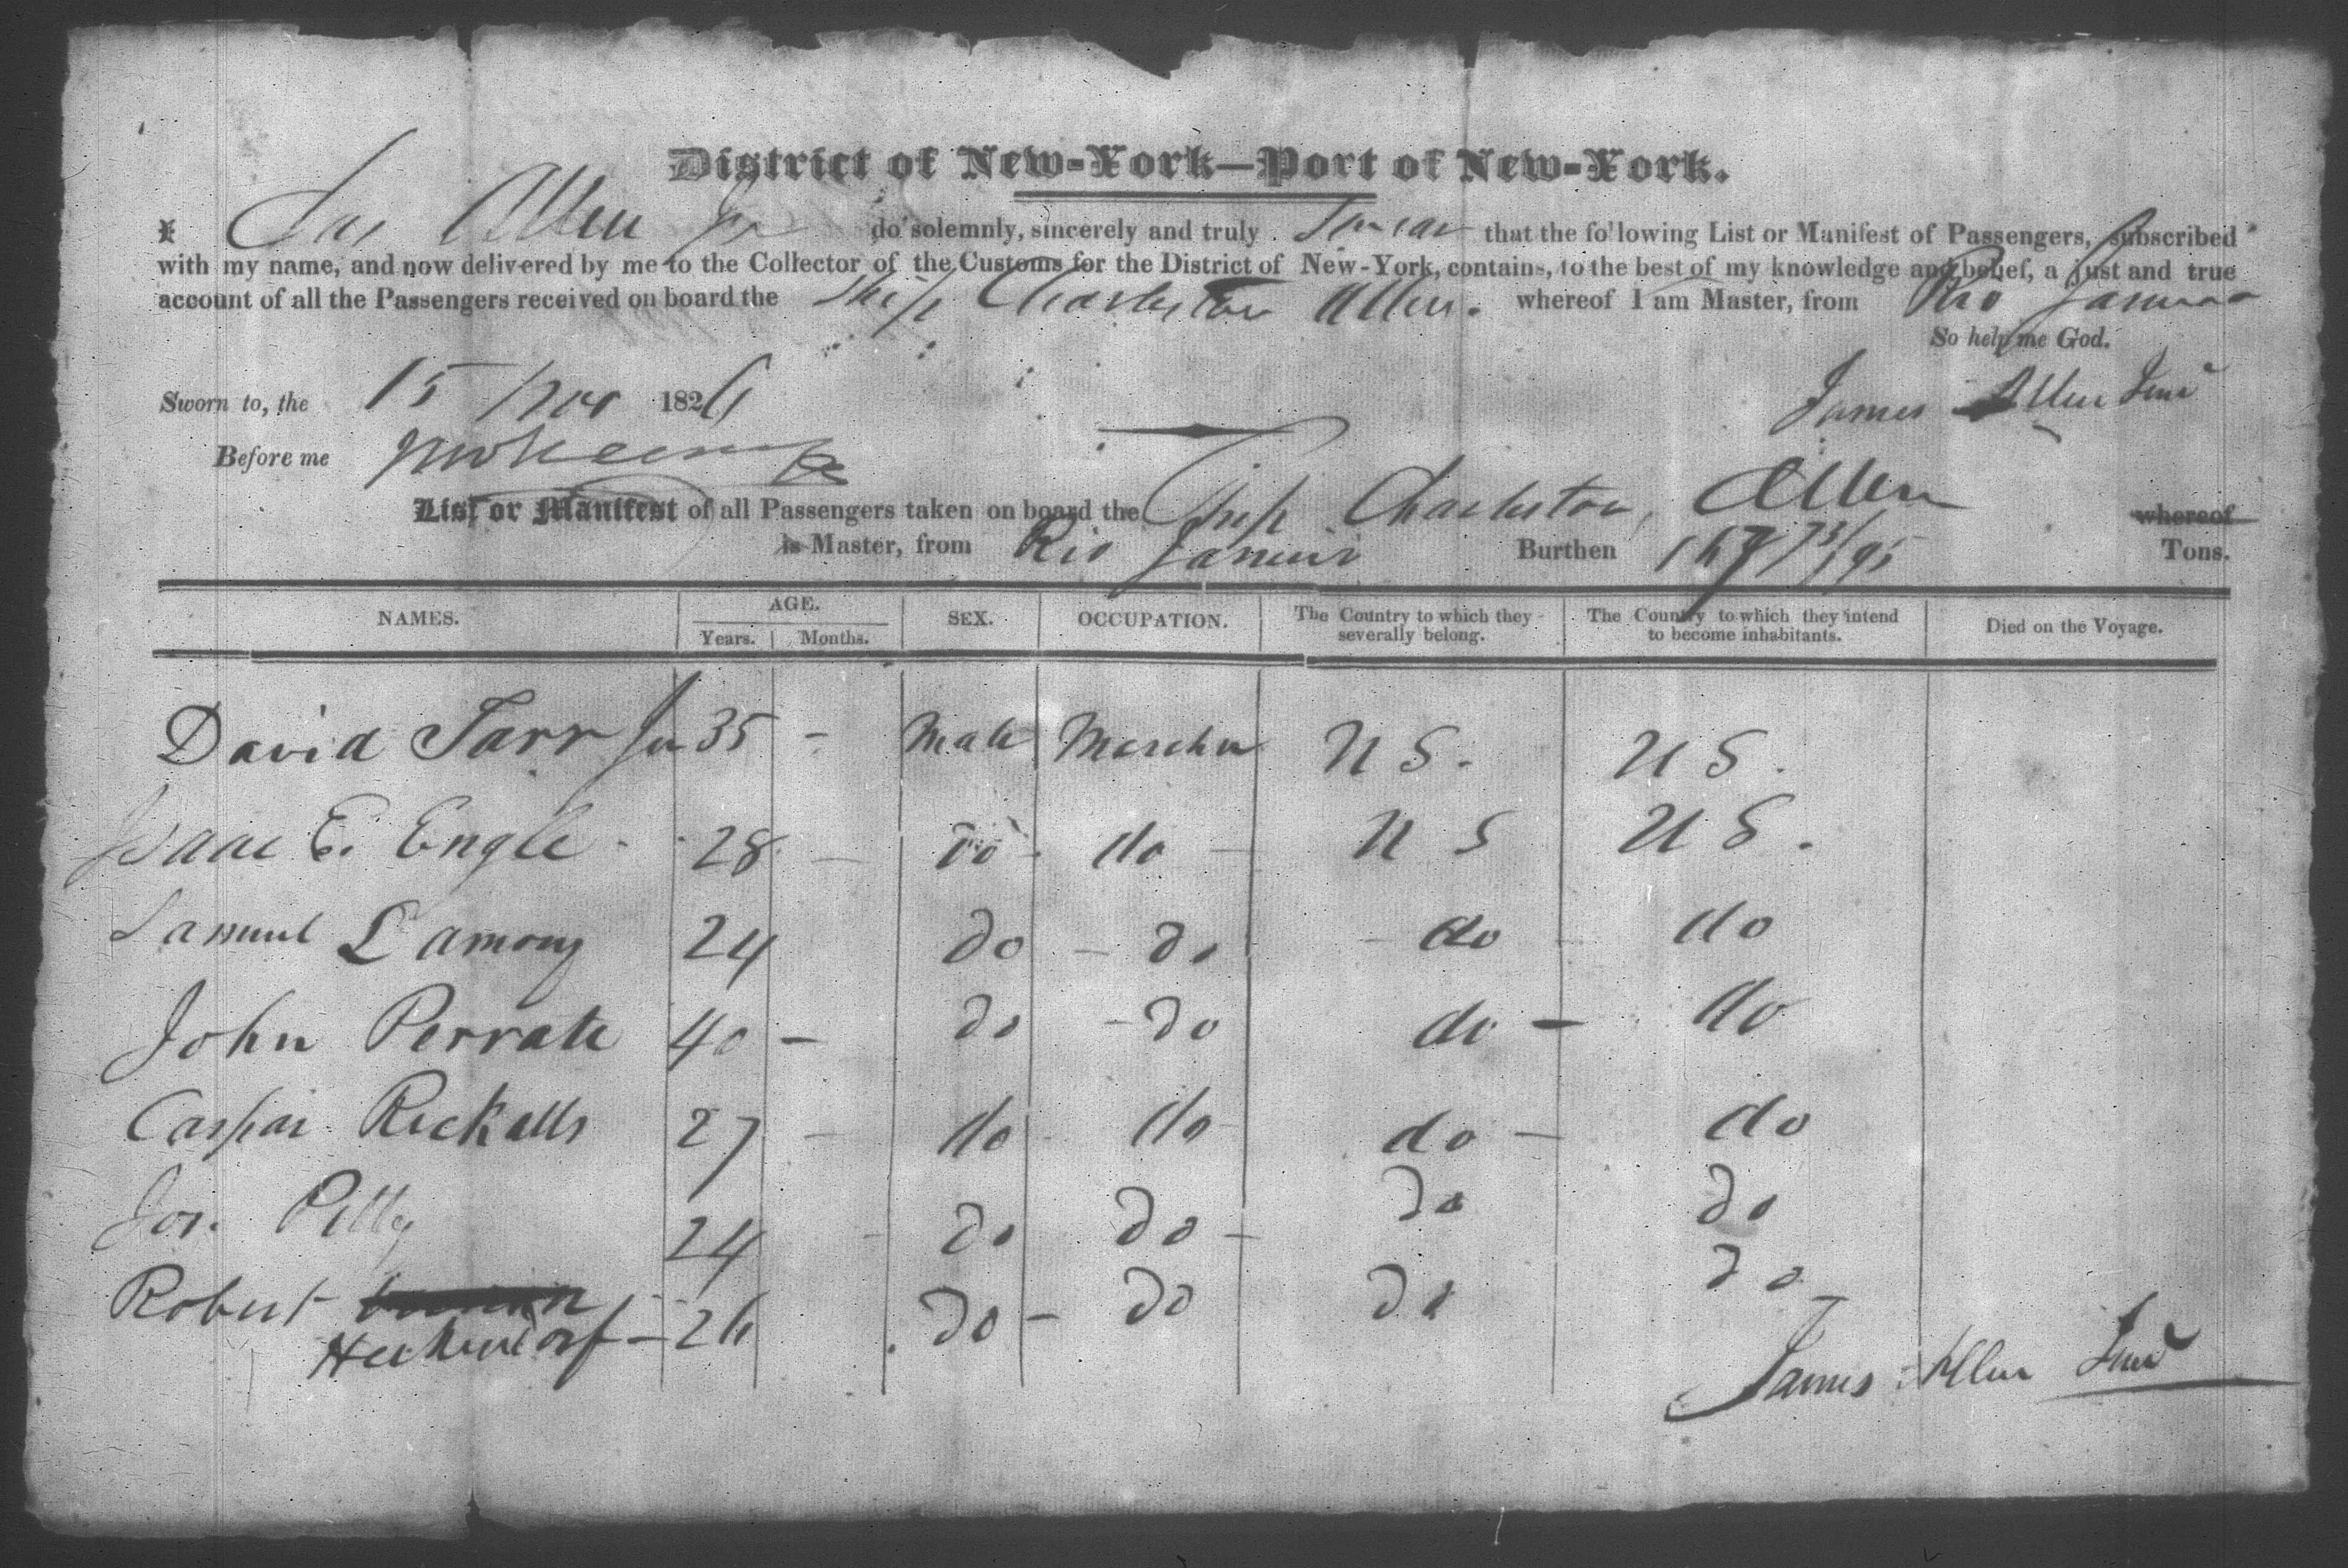 District of New-York—Port of New-York.
I Jas Allen Jr do solemnly, sincerely and truly Swear that the following List or Manifest of Passengers, subscribed
with my name, and now delivered by me to the Collector of the Customs for the District of New-York, contains, to the best of my knowledge and belief, a just and true
account of all the Passengers received on board the Ship Charleston Allen. whereof I am Master, from Rio Janeiro
So help me God.
Sworn to, the 15 Nov 1826
James Allen Junr
Before me
List or Manifest of all Passengers taken on board the Ship Charleston, Allen whereof
is Master, from Rio Janeiro Burthen Tons.
NAMES. AGE. SEX. OCCUPATION. The Country to which they severally belong. The Country to which they intend to become inhabitants. Died on the Voyage.
Years. Months.
David Tarr Jr 35 - Male Merchn U S. U S.
Isaac E. Engle 28 - Do do - U S U S.
Samuel Lamony 24 Do - Do - do - do
John Perrate 40 - Do - Do do - do
Caspar Rickalls 27 - do do do - do
Jos. Pilly 24 - Do Do - Do Do
Robert
Heckendorf - 26 Do - Do Do Do
James Allen Junr